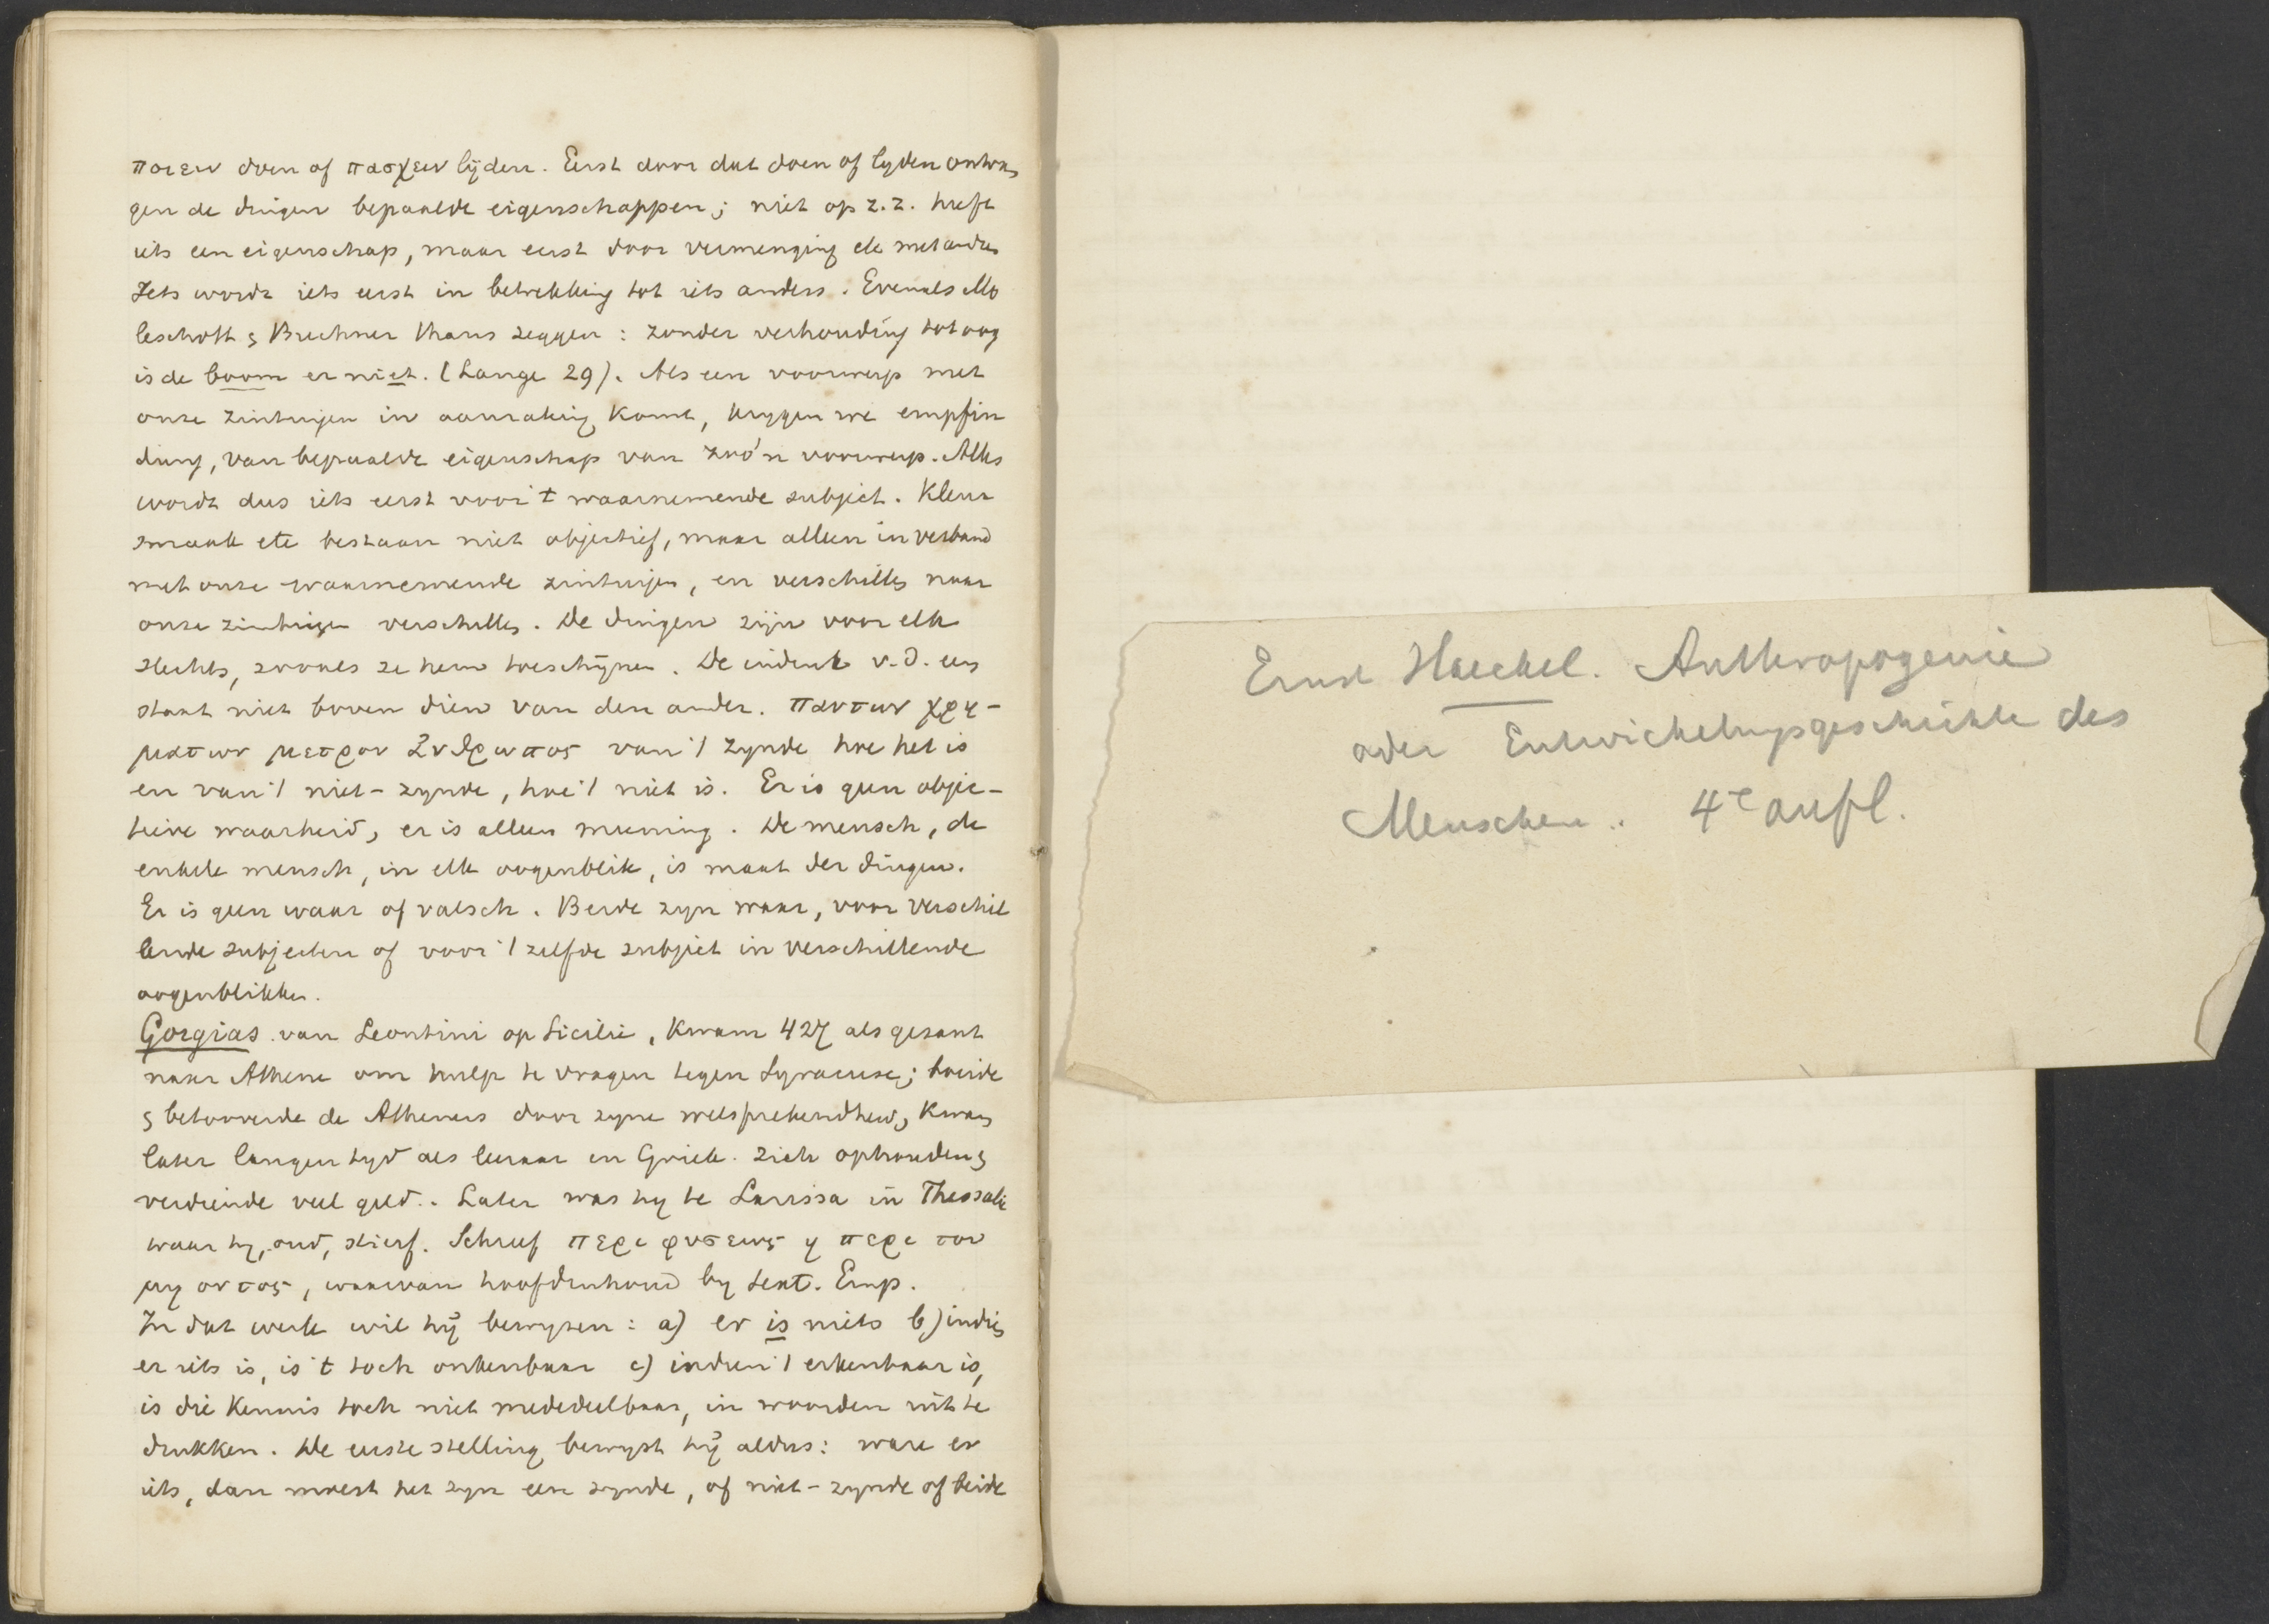 ποιειν doen of πασχειν lijden. Eerst door dat doen of lyden ontvan
gen de dingen bepaalde eigenschappen; niet op z.z. heeft
iets een eigenschap, maar eerst door vermenging etc met andr
Iets wordt iets eerst in betrekking tot iets anders. Evenals Mo
leschott & Buchner thans zeggen: zonder verhouding tot oog
is de boom er niet. (Lange 29). Als een voorwerp met
onze zintuigen in aanraking komt, krygen we empfin
dung, van bepaalde eigenschap van zoo'n voorwerp. Alles
wordt dus iets eerst voor 't waarnemende subject. Kleur
smaak etc bestaan niet objectief, maar alleen in verband
met onze waarnemende zintuigen, en verschillen naar
onze zintuigen verschillen. De dingen zijn voor elk
slechts, zooals ze hem toeschijnen. De indruk v.d. een
staat niet boven dien van den ander. Παντων χρη-
ματων μετρον ἀνθρωπος van 't zynde hoe het is
en van 't niet-zynde, hoe 't niet is. Er is geen objec-
tieve waarheid, er is alleen meening. De mensch, de
enkele mensch, in elk oogenblik, is maat der dingen.
Er is geen waar of valsch. Beide zyn waar, voor verschil
lende subjecten of voor 't zelfde subject in verschillende
oogenblikken.
Gorgias van Leontini op Sicilie, kwam 427 als gezant
naar Athene om hulp te vragen tegen Syracuse; boeide
& betooverde de Atheners door zyne welsprekendheid, kwam
later langen tyd als leeraar in Griek. zich ophouden &
verdiende veel geld. Later was hy te Larissa in Thessali
waar hy, oud, stierf. Schreef περι φυσεως η περι του
μη οντος, waarvan hoofdinhoud by Sext. Emp.
In dat werk wil hij bewyzen: a) er is niets b) indien
er iets is, is 't toch onkenbaar c) indien 't erkenbaar is,
is die kennis toch niet mededeelbaar, in woorden uit te
drukken. De eerste stelling bewyst hij aldus: ware er
iets, dan moest het zyn een zynde, of niet-zynde of beide
Ernst Haeckel. Anthropogenie
oder Entwickelungsgeschichte des
Menschen. 4e aufl.